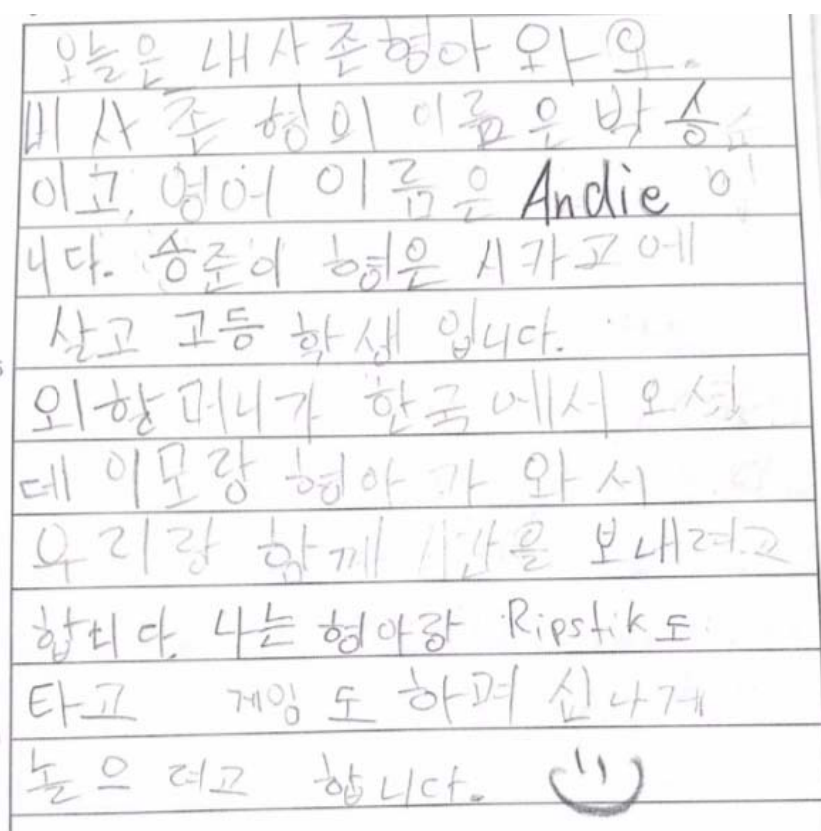 오늘은 내사존형아 와요.
내사존 형의 이름은 박승
이고, 영어 이름은 Andie 입
니다. 승준이 형은 시카고에
살고 고등 학생 입니다.
외할머니가 한국에서 오셨
데 이모랑 형아 가 와서
우리랑 함께 시간을 보내려고
합니다. 나는 형아랑 Ripstik도
타고 게임도 하며 신나게
놀으려고 합니다.